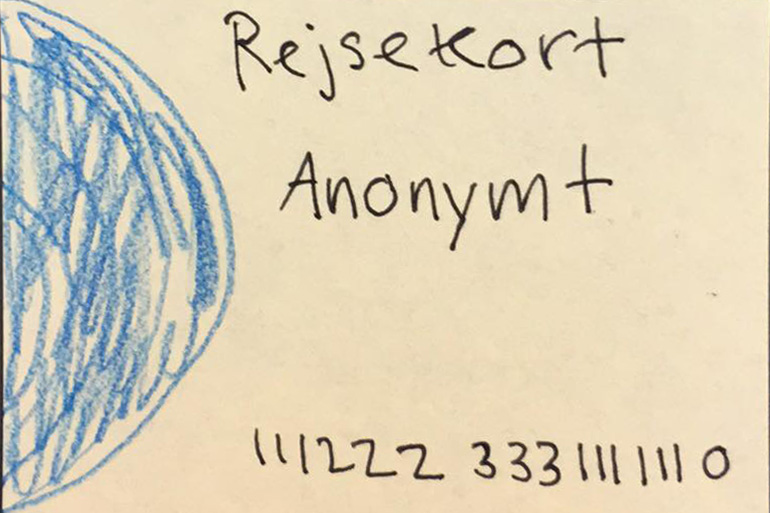 Rejsekort
Anonymt
111222 333111 111 0